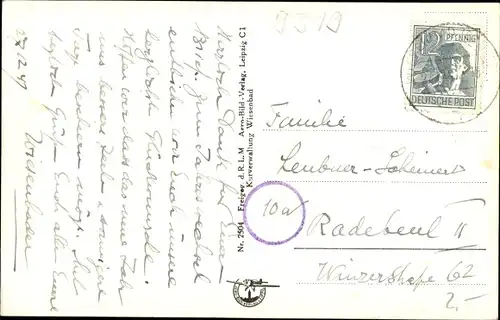 9319
Herzlich Dank für Euren
Brief. Zum Jahreswechsel
entbieten wir Euch unsere
herzlichsten Glückwünsche.
Hoffen wir dass das neue Jahr
uns bessere Zeiten
Tage bringen möge. Mit
herzlichen Grüßen Euch allen Eure
27.12.47
Nr. 2504 Freigeg. d. R.L.M Aero-Bild-Verlag, Leipzig C1
Kurverwaltung Wiesenbad
12 PFENNIG
DEUTSCHE POST
Familie
Leubner-
10a
Radebeul II
Winzerstraße 62
2,-